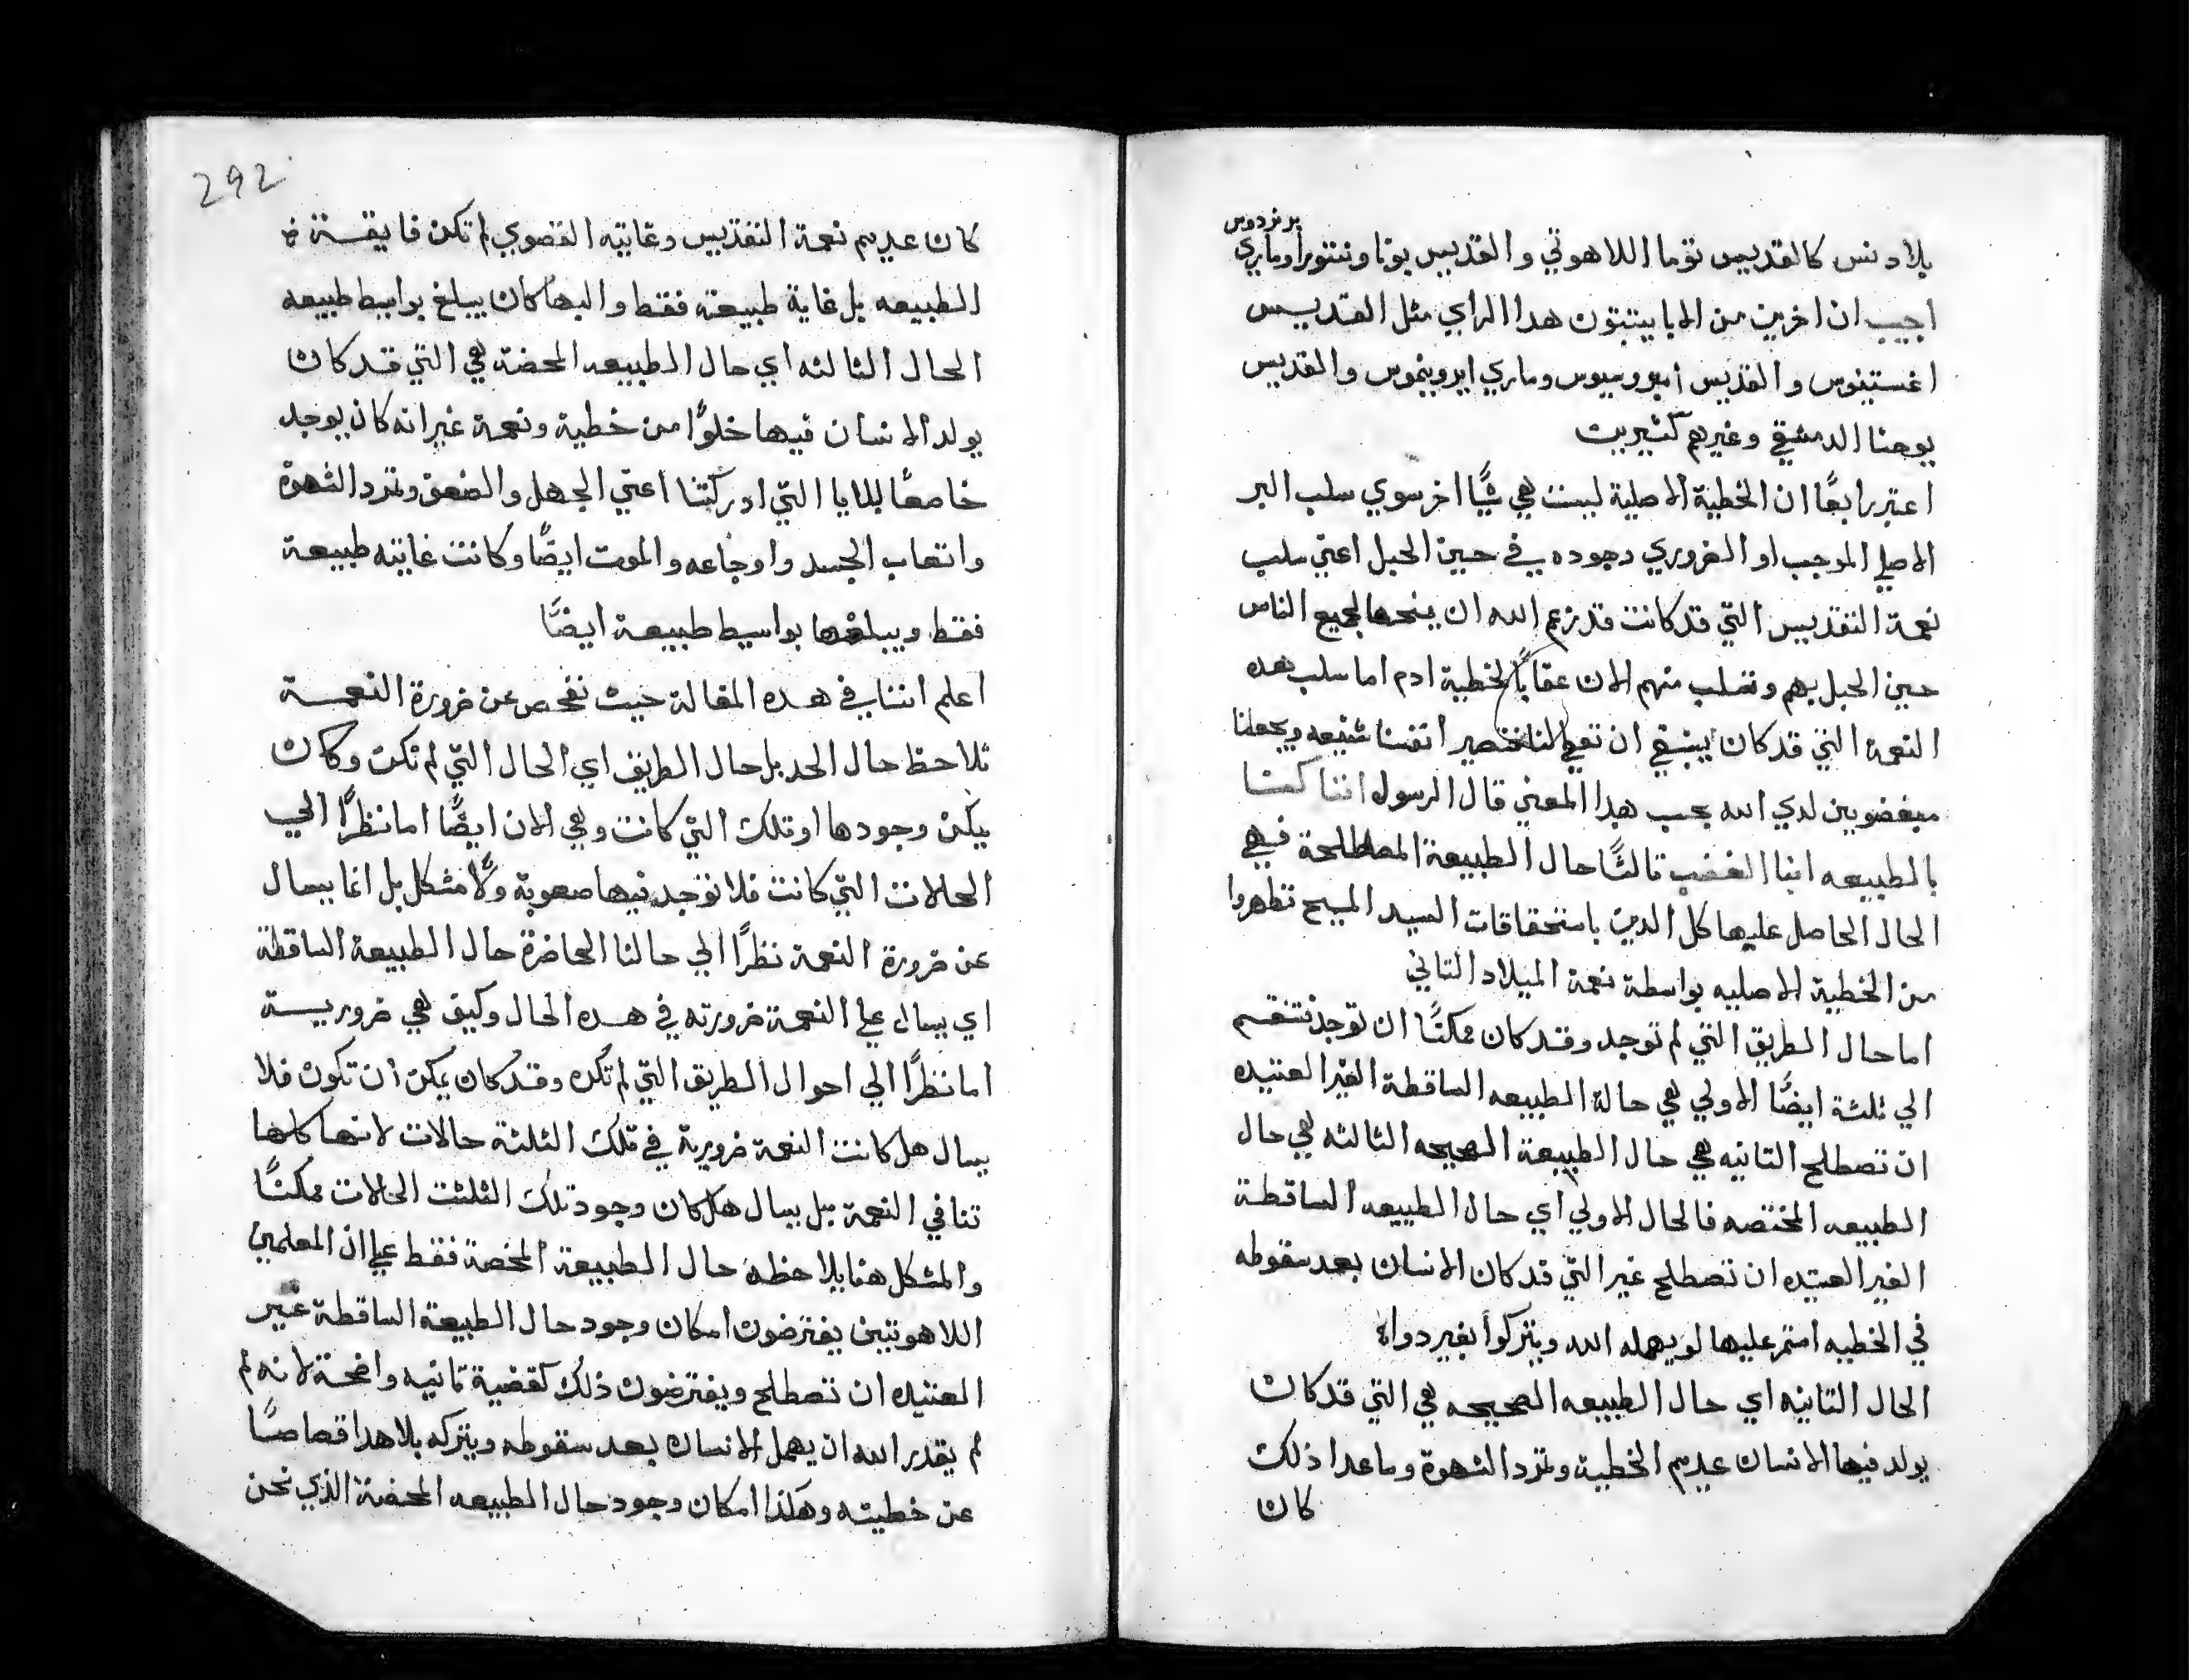 برنردوس
بلا دنس كالقديس توما اللاهوتي والقديس بونا ونتورا وماري
اجيب ان اخرين من الابا يثبتون هدا الراي مثل القديس
اغستينوس والقديس امبروسيوس وماري ايرونيموس والقديس
يوحنا الدمشقي وغيرهم كثيرين
اعتبر رابعًا ان الخطية الاصلية ليست هي شيًا اخر سوي سلب البر
الاصلي الموجب او الضروري وجوده في حين الحبل اعني سلب
نعمة التقديس التي قد كانت قد زعم الله ان يمنحها لجميع الناس
حين الحبل بهم وتسلب منهم الان عقابًا لخطية ادم اما سلب هده
النعمة التي قد كان ينبغي ان تعطي لنا فتصير انفسنا شنيعه ويجعلنا
مبغضوين لدي الله بحسب هدا المعني قال الرسول اننا كنا
بالطبيعه ابنا الغضب تالتًا حال الطبيعة المصطلحة فهي
الحال الحاصل عليها كل الدين باستحقاقات السيد المسيح تطهروا
من الخطية الاصليه بواسطة نعمة الميلاد التاني
اما حال الطريق التي لم توجد وقد كان ممكنًا ان توجد فتنقسم
الي ثلثة ايضًا الاولي هي حالة الطبيعه الساقطة الغير العتيده
ان تصطلح التانيه هي حال الطبيعة الصحيحه الثالثه هي حال
الطبيعه المختصه فالحال الاولي اي حال الطبيعه الساقطة
الغير العتيده ان تصطلح غير التي قد كان الانسان بعد سقوطه
في الخطيه استمر عليها لو يهمله الله ويتركوا بغير دواة
الحال التانيه اي حال الطبيعه الصحيحه هي التي قد كان
يولد فيها الانسان عديم الخطية وتمرد الشهوة وما عدا ذلك
كان
292
كان عديم نعمة التقديس وغايته القصوي لم تكن فايقة
الطبيعه بل غاية طبيعة فقط واليها كان يبلغ بواسط طبيعه
الحال الثالثه اي حال الطبيعه المحضة هي التي قد كان
يولد الانسان فيها خلوًا من خطية ونعمة غير انه كان يوجد
خاضعًا للبلايا التي ادركتنا اعني الجهل والضعف وتمرد الشهوة
واتعاب الجسد واوجاعه والموت ايضًا وكانت غايته طبيعة
فقط ويبلغها بواسيط طبيعة ايضًا
اعلم اننا في هده المقالة حيث نفحص عن ضرورة النعمة
نلاحظ حال الحد بل حال الطريق اي الحال التي لم تكن وكان
يمكن وجودها او تلك التي كانت وهي الان ايضًا اما نظرًا الي
الحالات التي كانت فلا توجد فيها صعوبة ولا مشكل بل انما يسال
عن ضرورة النعمة نظرًا الي حالنا الحاضرة حال الطبيعة الساقطة
اي يسال علي النعمة ضرورته في هده الحال وكيف هي ضرورية
اما نظرًا الي احوال الطريق التي لم تكن وقد كان يمكن ان تكون فلا
يسال هل كانت النعمة ضرويرة في تلك الثلثة حالات لانها كلها
تنافي النعمة بل يسال هل كان وجود تلك الثلثت الحالات ممكنًا
والمشكل هنا يلاحظ حال الطبيعة المحضة فقط علي ان المعلمين
اللاهوتيين يفترضون امكان وجود حال الطبيعة الساقطة غير
العتيده ان تصطلح ويفترضون ذلك كقضية تانيه واضحة لانه لم
لم يقدر الله ان يهمل الانسان بعد سقوطه ويتركه بلا هدا قصاصًا
عن خطيته وهكذا امكان وجود حال الطبيعه المحضة الذي نحن